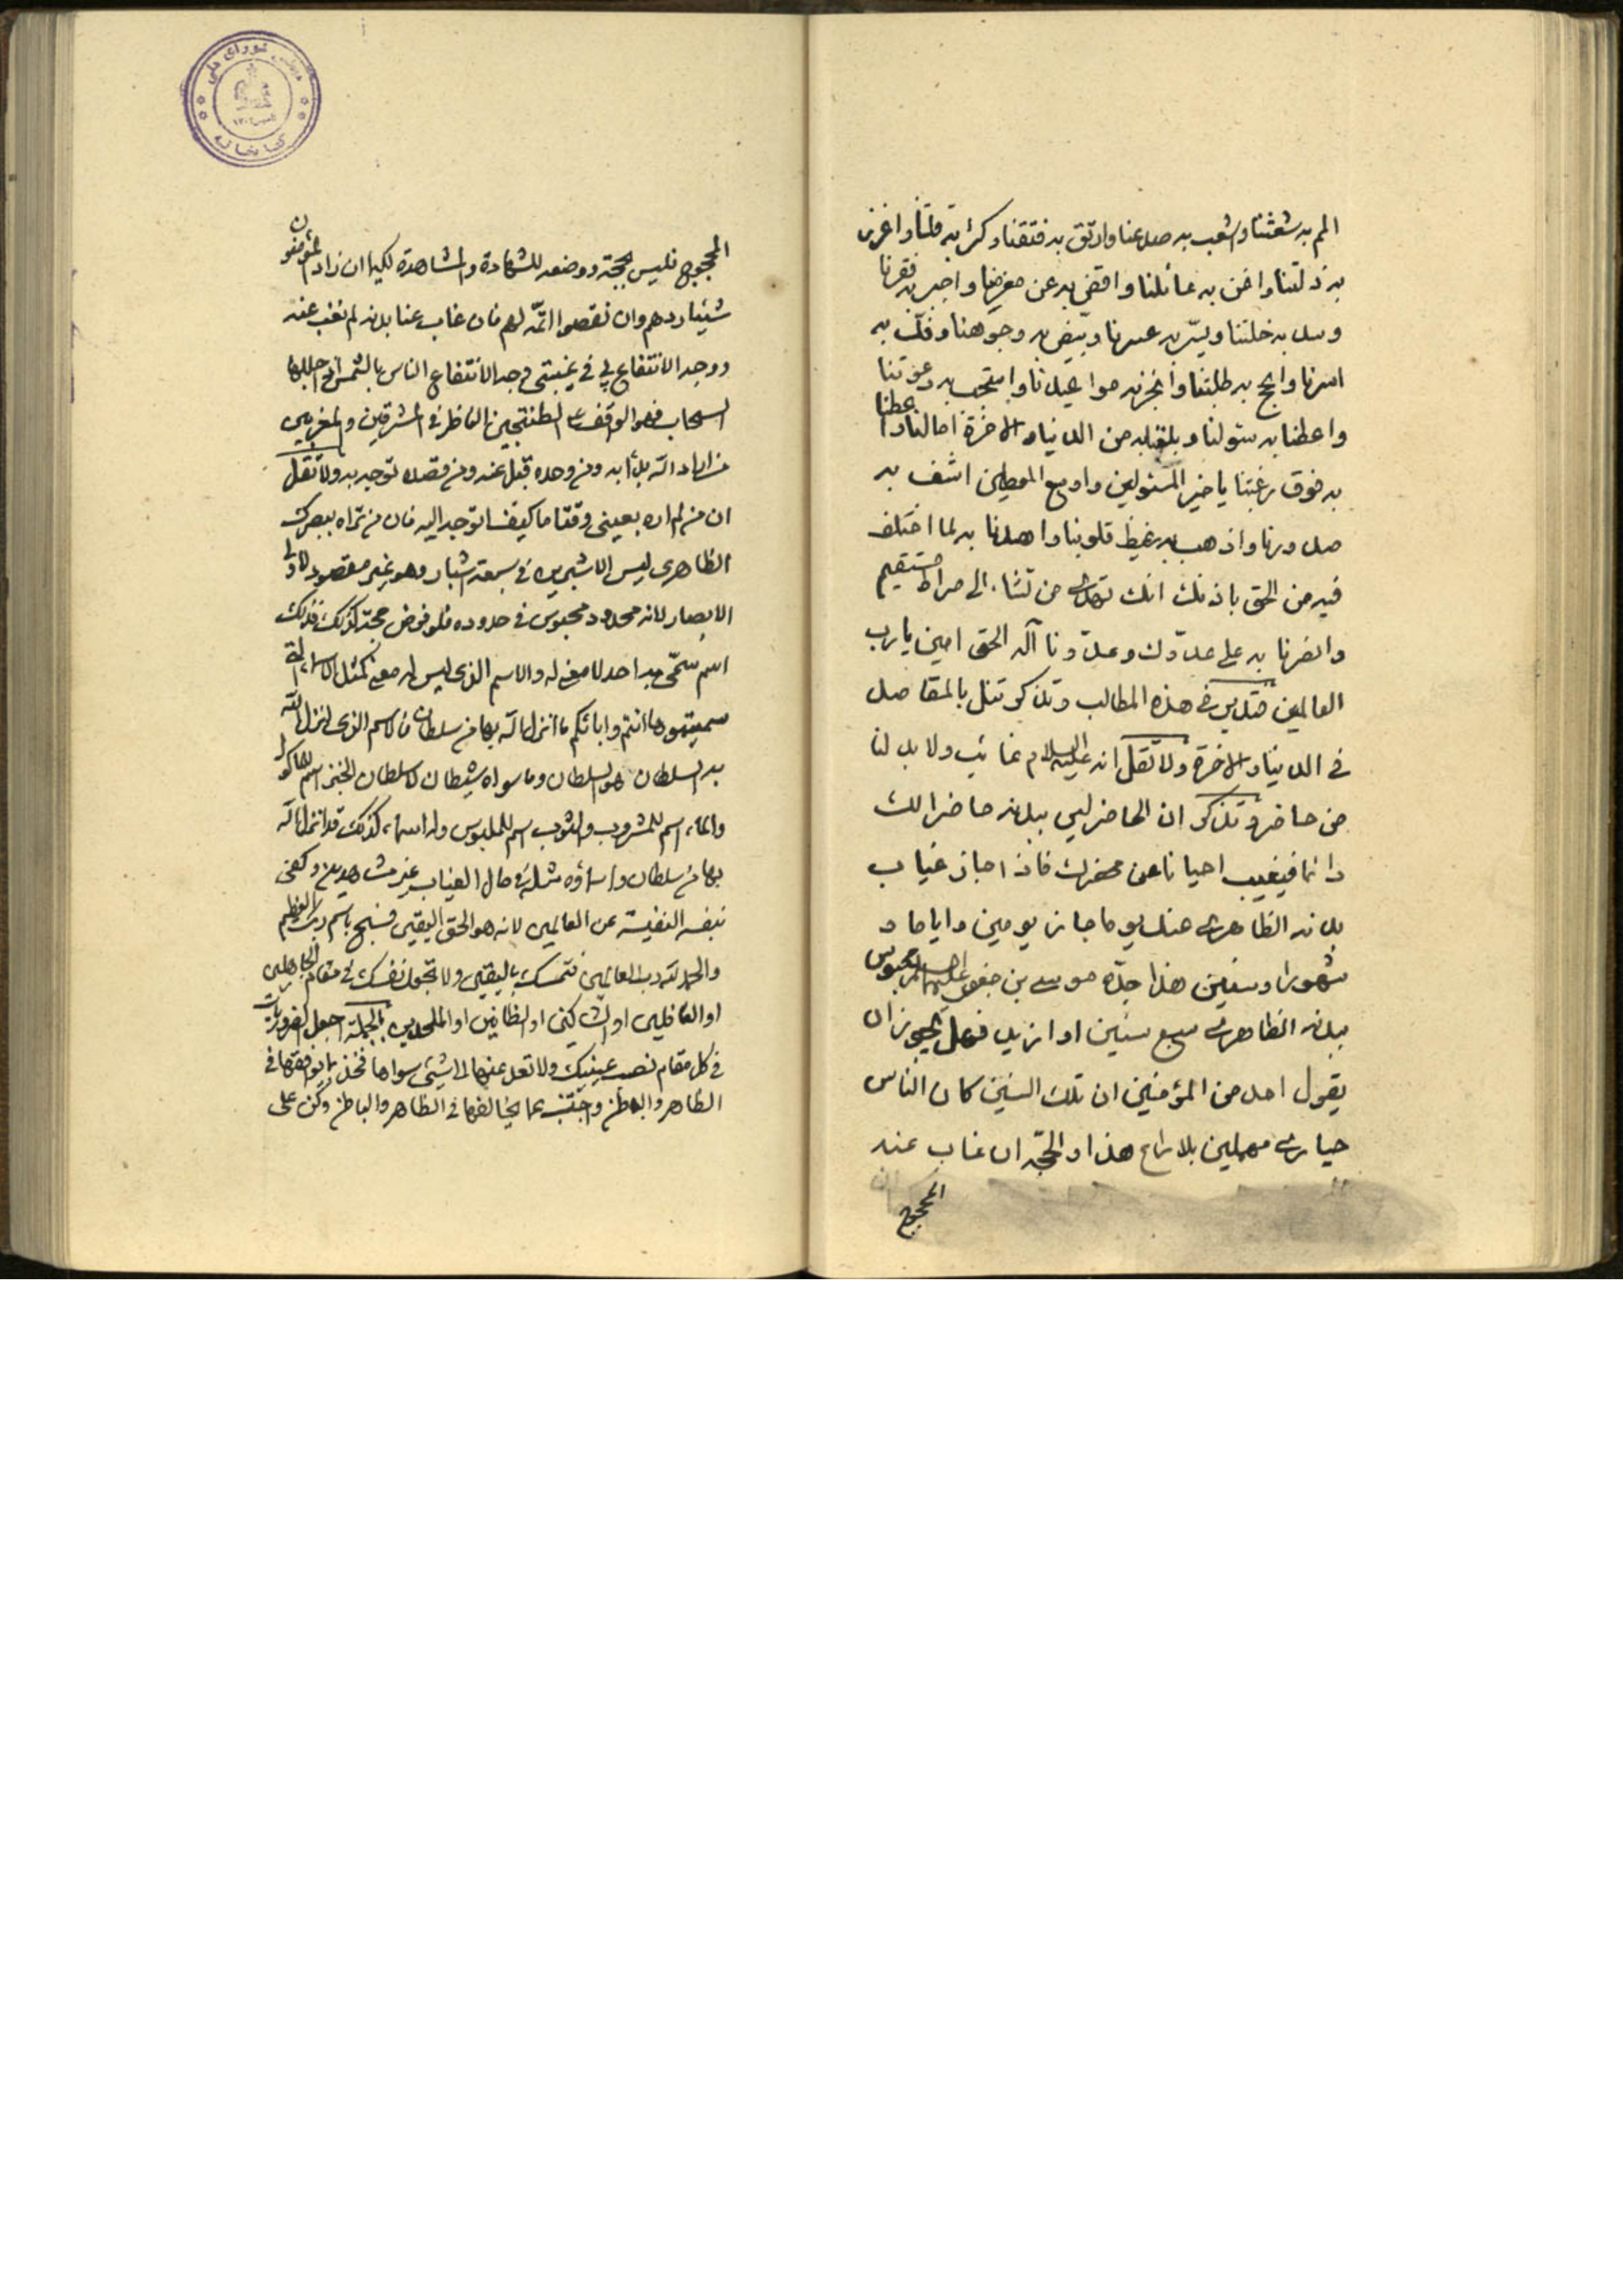 المم به شعثنا واشعب به صدعنا وارتق به فتقنا وكثر به قلتنا واعزز
به ذلتنا واغن به عائلنا واقض به عن مغرمنا واجبر به فقرنا
وسد به خلتنا ويسّر به عسرنا وبيّض به وجوهنا وفكّ به
اسرنا وانجح به طلبتنا وانجز به مواعيدنا واستجب به دعوتنا
واعطنا به سئولنا وبلغنا به من الدنيا والاخرة امالنا واعطنا
به فوق رغبتنا يا خير المسئولين واوسع المعطين اشف به
صدورنا واذهب به غيظ قلوبنا واهدنا به لما اختلف
فيه من الحق باذنك انك تهدى من تشاء الى صراط مستقيم
وانصرنا به على عدوّك وعدوّنا آله الحق امين يا رب
العالمين فتدبر فى هذه المطالب وتذكر تنل بالمقاصد
فى الدنيا والاخرة ولا تقل انه عليه السلام غائب ولا بد لنا
من حاضر وتذكر ان الحاضر ليس ببدنه حاضرا لك
دائما فيغيب احيانا عن محضرك فاذا جاز غياب
بدنه الظاهرى عنك يوما جاز يومين واياما و
شهورا وسنين هذا جدّه موسى بن جعفر عليهما السلام محبوس
ببدنه الظاهرى سبع سنين او ازيد فهل يجوز ان
يقول احد من المؤمنين ان تلك السنين كان الناس
حيارى مهملين بلا راع هذا والحجّة ان غاب عنه
المحجوج
المحجوج فليس بحجة ووضعه للشهادة والمشاهدة لكيلا ان زاد المؤمنون
شيئا ردهم وان نقصوا اتمّه لهم فان غاب عنا بدنه لم نغب عنه
ووجه الانتفاع بى فى غيبتى وجه الانتفاع الناس بالشمس اذا جللها
السحاب فهو الواقف على الطتنجين الناظر فى المشرقين والمغربين
من اراد الله بدأ به ومن وحده قبل عنه ومن قصده توجه به ولا تقل
ان من لم اره بعينى وقتا ما كيف اتوجه اليه فان من تراه ببصرك
الظاهرى ليس الا شبرين فى سبعة اشبار وهو غير مقصود لاولى
الابصار لانه محدود محبوس فى حدوده فلو فرض حجة كذلك فذلك
اسم سمّى به احد لا معنى له والاسم الذى ليس له معنى كمثل الاسماء التى
سميتموها انتم واباؤكم ما انزل الله بها من سلطان فالاسم الذى انزل الله
به السلطان هو السلطان وما سواه شيطان لا سلطان الخبز اسم للماكول
والماء اسم للمشروب والثوب اسم للملبوس وله اسماء كذلك قد انزل الله
بها من سلطان واسماؤه مثله فى حال الغياب غير مشاهدين وكفى
بنفسه النفيسة عن العالمين لانه هو الحق اليقين فسبح باسم ربك العظيم
والحمد لله رب العالمين فتمسك باليقين ولا تجعل نفسك فى مقام الجاهلين
او الغافلين او الشاكين او الظانين او الملحدين بالجملة اجعل الضروريات
فى كل مقام نصب عينيك ولا تعد عنها الى شيئ سواها فخذ ما يوافقها فى
الظاهر والباطن واجتنب عما يخالفها فى الظاهر والباطن وكن على
كتابخانه